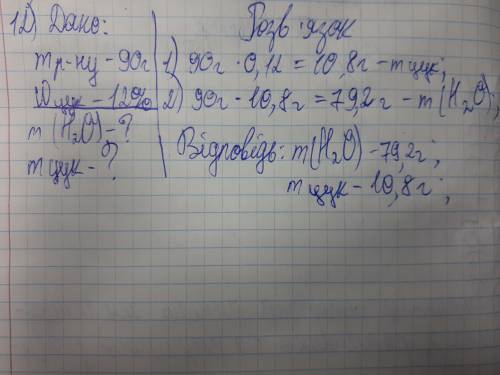 1D) Дано:
m р-ну - 90г
W цук - 12%
m (H₂O) - ?
m цук - ?
Розв'язок
1) 90г · 0,12 = 10,8г - m цук;
2) 90г - 10,8г = 79,2г - m (H₂O);
Відповідь: m(H₂O) - 79,2г;
m цук - 10,8г;